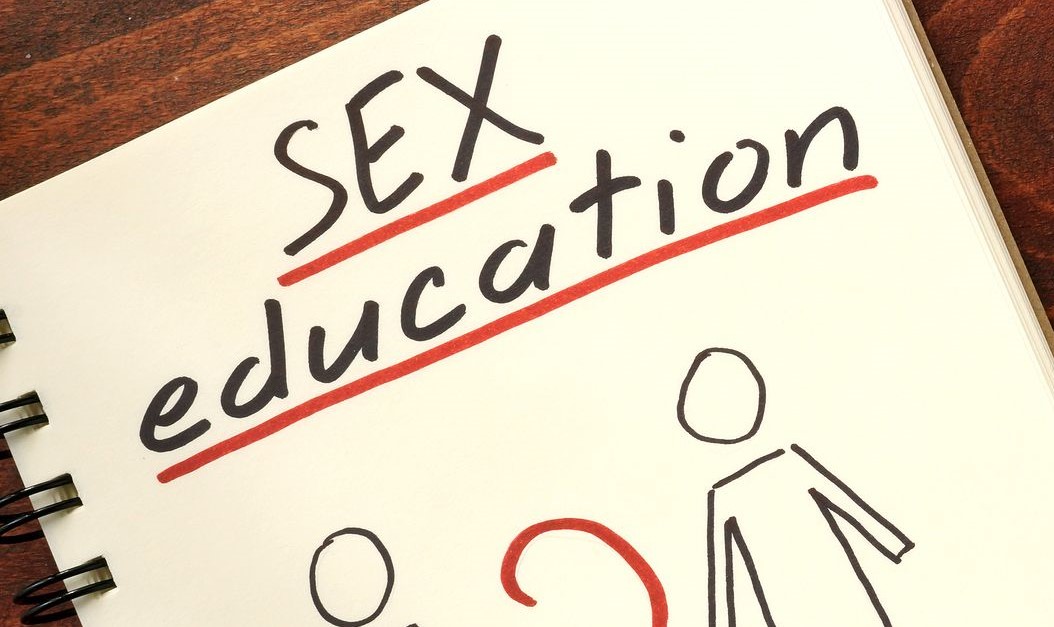 SEX
education
?